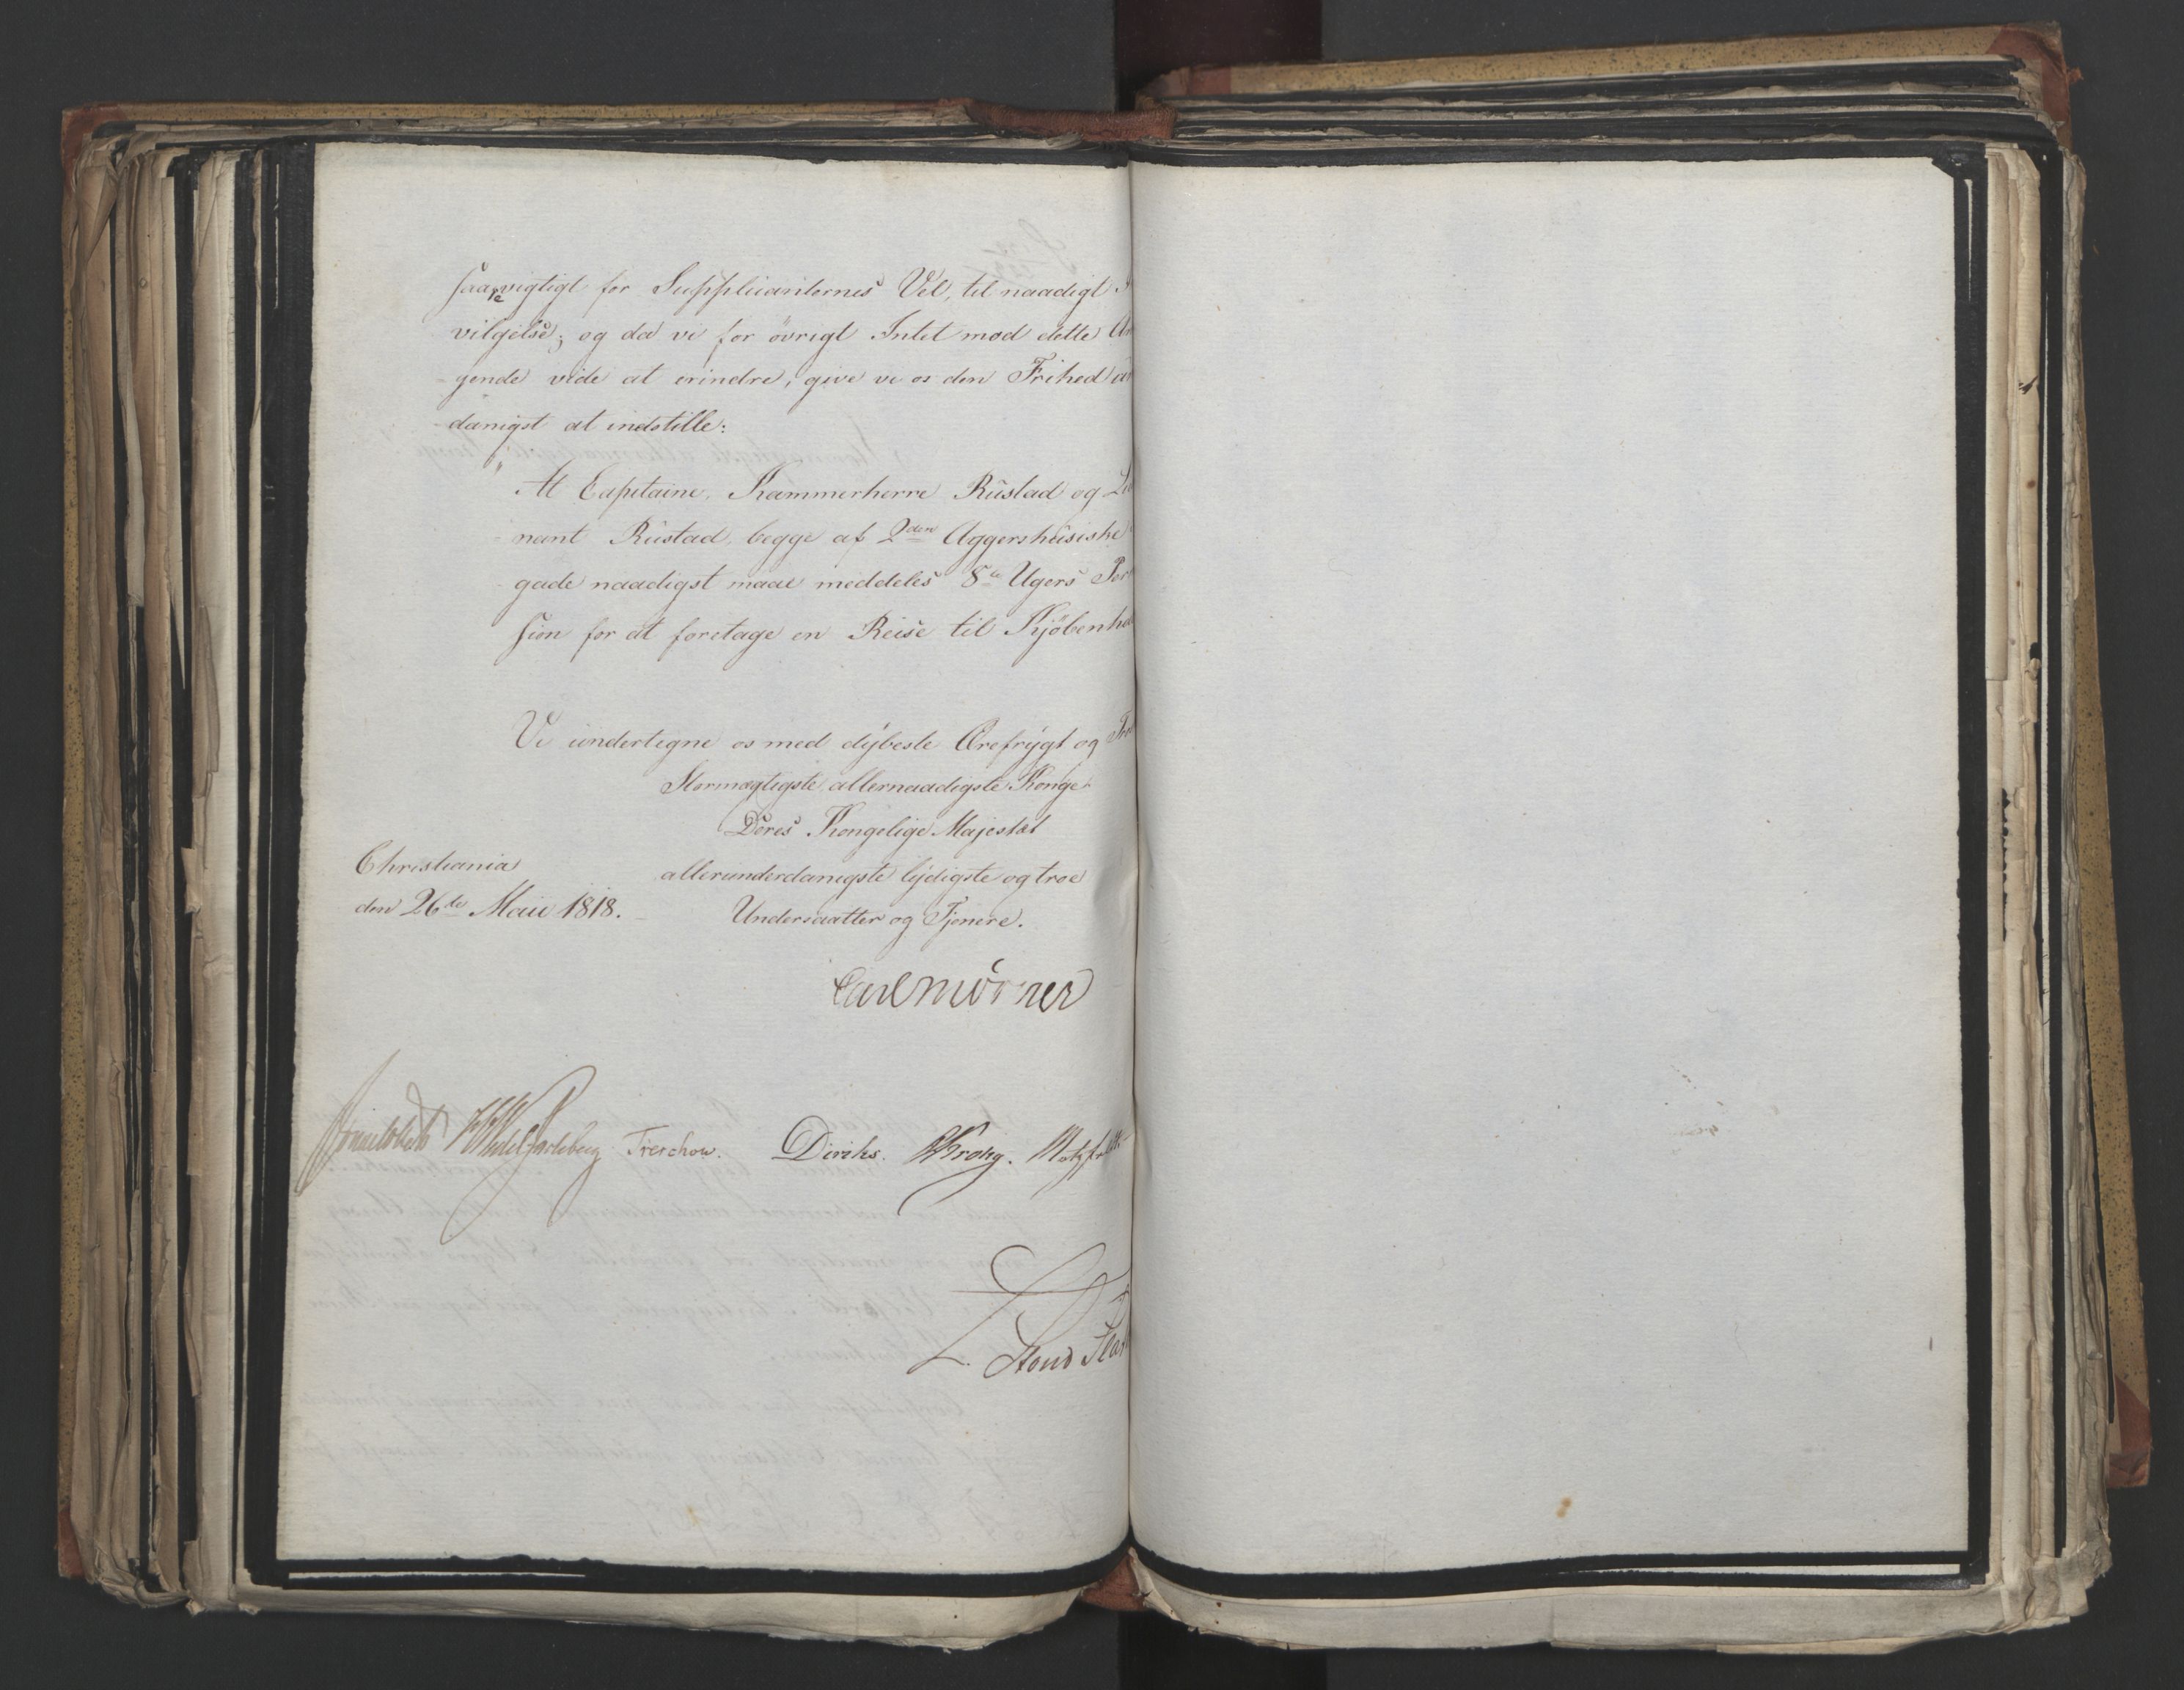 saa vigtigt for Supplicanternes Vel, til naadigt
vilgelse; og da vi for övrigt Intet mod dette
gende vide at erindre, give vi os den Frihed
danigst at indstille:
" At Capitaine, Kammerherre Rustad og
nant Rustad, begge af 2den Aggershusiske
gade naadigst maae meddeles 8te Ugers
sion for at foretage en Reise til Kjöbenha
Vi undertegne os med dybeste Ærefrygt og
Stormægtigste allernaadigste Konge
Deres Kongelige Majestæt
Christiania
allerunderdanigste lydigste og troe
den 26de Maii 1818.
Undersaatter og Tjenere.
Carl Mörner
Sommerhielm HWedel Jarlsberg Treschow. Diriks. Krohg. Motzfeldt